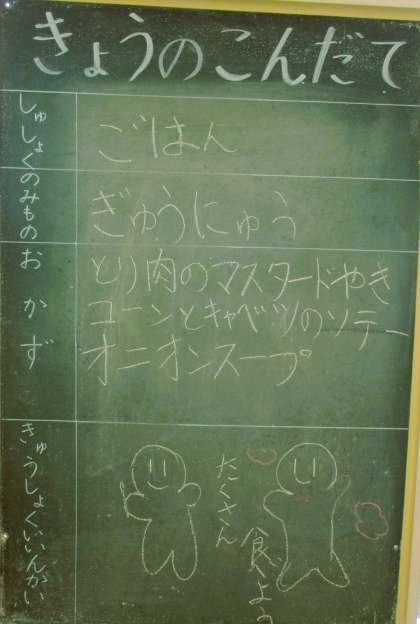 きょうのこんだて
しゅしょく
ごはん
のみもの
ぎゅうにゅう
おかず
とり肉のマスタードやき
コーンとキャベツのソテー
オニオンスープ
きゅうしょくいいんかい
たくさん
食べよう